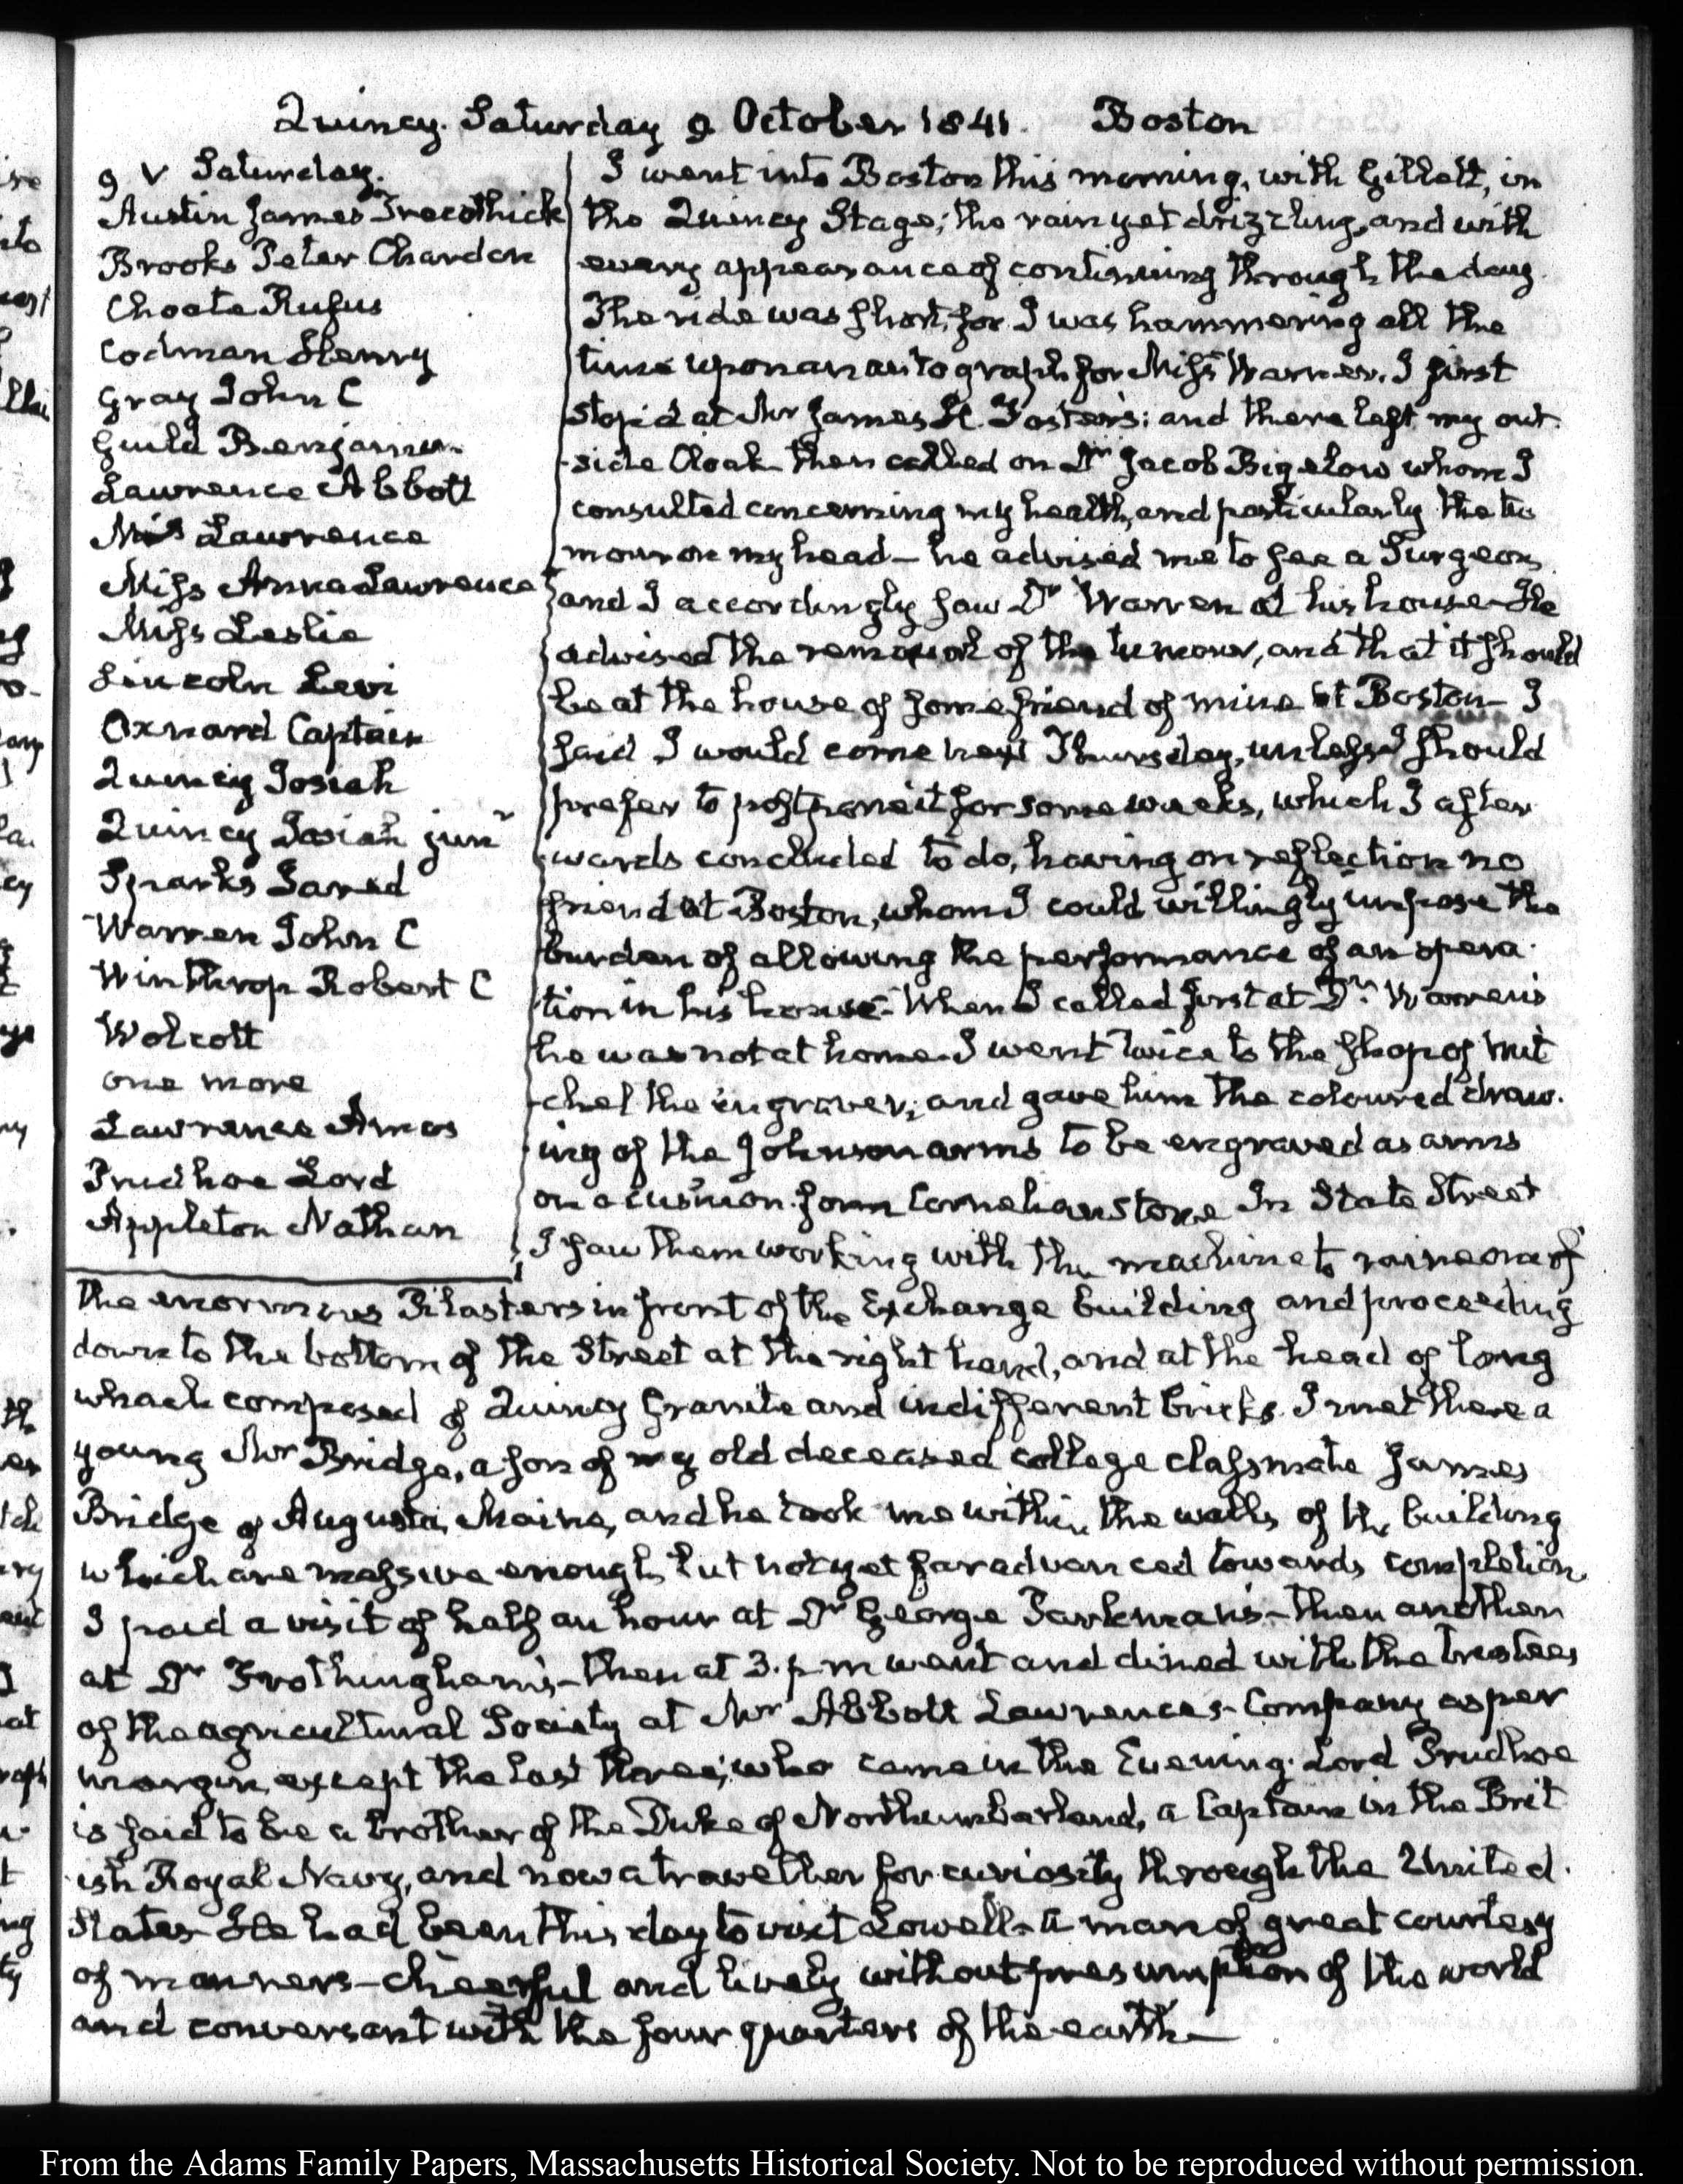 Quincy. Saturday 9 October 1841. Boston
9 V Saturday.
Austin James Trecothick
Brooks Peter Chardon
Choate Rufus
Codman Henry
Gray John C
Guild Benjamin
Lawrence Abbott
Mrs Lawrence
Miss Anna Lawrence
Miss Leslie
Lincoln Levi
Oxnard Captain
Quincy Josiah
Quincy Josiah junr
Sparks Jared
Warren John C
Winthrop Robert C
Wolcott
one more
Lawrence Amos
Prudhoe Lord
Appleton Nathan
I went into Boston this morning, with Gillett, in
the Quincy Stage; the rain yet drizzling, and with
every appearance of continuing through the day.
The ride was short, for I was hammering all the
time upon an autograph for Miss Warner. I first
stop'd at Mr James H. Foster's; and there left my out-
side Cloak then called on Dr Jacob Bigelow whom I
consulted concerning my health, and particularly the tu
mour on my head— he advised me to see a Surgeon,
and I accordingly saw Dr Warren at his house— He
advised the removal of the tumour, and that it should
be at the house of some friend of mine at Boston— I
said I would come next Thursday, unless I should
prefer to postpone it for some weeks, which I after-
wards concluded to do, having on reflection no
friend at Boston, whom I could willingly impose the
burden of allowing the performance of an opera-
tion in his house— When I called first at Dr. Warren's
he was not at home. I went twice to the shop of Mit
chel the engraver, and gave him the coloured draw-
ing of the Johnson arms to be engraved as arms
on a cushion form Cornelian stone In State Street
I saw them working with the machine to raise one of
the enormous Pilasters in front of the Exchange building and proceeding
down to the bottom of the Street at the right hand, and at the head of long
wharf composed of Quincy Granite and indifferent bricks. I met there a
young Mr Bridge, a son of my old deceased college classmate James
Bridge of Augusta, Maine, and he took me within the walls of the building
which are massive enough, but not yet far advanced towards completion.
I paid a visit of half an hour at Dr George Parkman's— then another
at Dr Frothingham's— then at 3. p m went and dined with the trustees
of the agricultural Society at Mr Abbott Lawrence's— Company as per
margin, except the last three; who came in the Evening. Lord Prudhoe
is said to be a brother of the Duke of Northumberland, a Captain in the Brit
ish Royal Navy, and now a traveller for curiosity through the United
States— He had been this day to visit Lowell— a man of great courtesy
of manners— cheerful and lively without presumption of the world
and conversant with the four quarters of the earth—
From the Adams Family Papers, Massachusetts Historical Society. Not to be reproduced without permission.